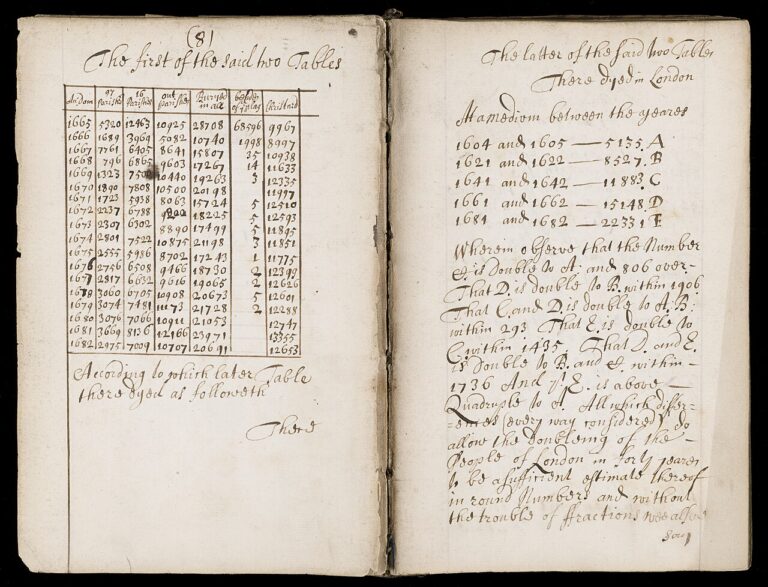 (8)
The first of the said two Tables
An dom 97 parishes 16 parishes out parishes Buried in all besides of plag Christned
1665 5320 12463 10925 28708 68596 9967
1666 1689 3969 5082 10740 1998 8997
1667 761 6405 8641 15807 35 10938
1668 796 6865 9603 17267 14 11633
1669 1323 7500 10440 19263 3 12335
1670 1890 7808 10500 20198 11997
1671 1723 5938 8063 15724 5 12510
1672 2237 6788 9200 18225 5 12593
1673 2307 6302 8890 17499 5 11895
1674 2801 7522 10875 21198 3 11851
1675 2555 5986 8702 17243 1 11775
1676 2756 6508 9466 18730 2 12399
1677 2817 6632 9616 19065 2 12626
1678 3060 6705 10908 20673 5 12601
1679 3074 7481 11173 21728 2 12288
1680 3076 7066 10911 21053 12747
1681 3669 8136 12166 23971 13355
1682 2975 7009 10707 20691 12653
According to which later Table
there dyed as followeth
There
The latter of the said two Tables
There dyed in London
At a medium between the yeares
1604 and 1605 — 5135. A
1621 and 1622 — 8527. B
1641 and 1642 — 11883. C
1661 and 1662 — 15148. D
1681 and 1682 — 22331. E
Wherein observe that the Number
C. is Double to A: and 806 over-
That D. is double to B. within 1906
That C. and D. is double to A. B:
within 293 That E. is double to
C. within 1435. That D. and E.
is Double to B. and C. within-
1736 And yt E. is above —
Quadruple to A. All which differ-
-ences (every way considered) do
allow the doubleing of the —
People of London in forty yeares
to be a sufficient estimate thereof
in round Numbers and without
the trouble of ffractions wee alsoe
say